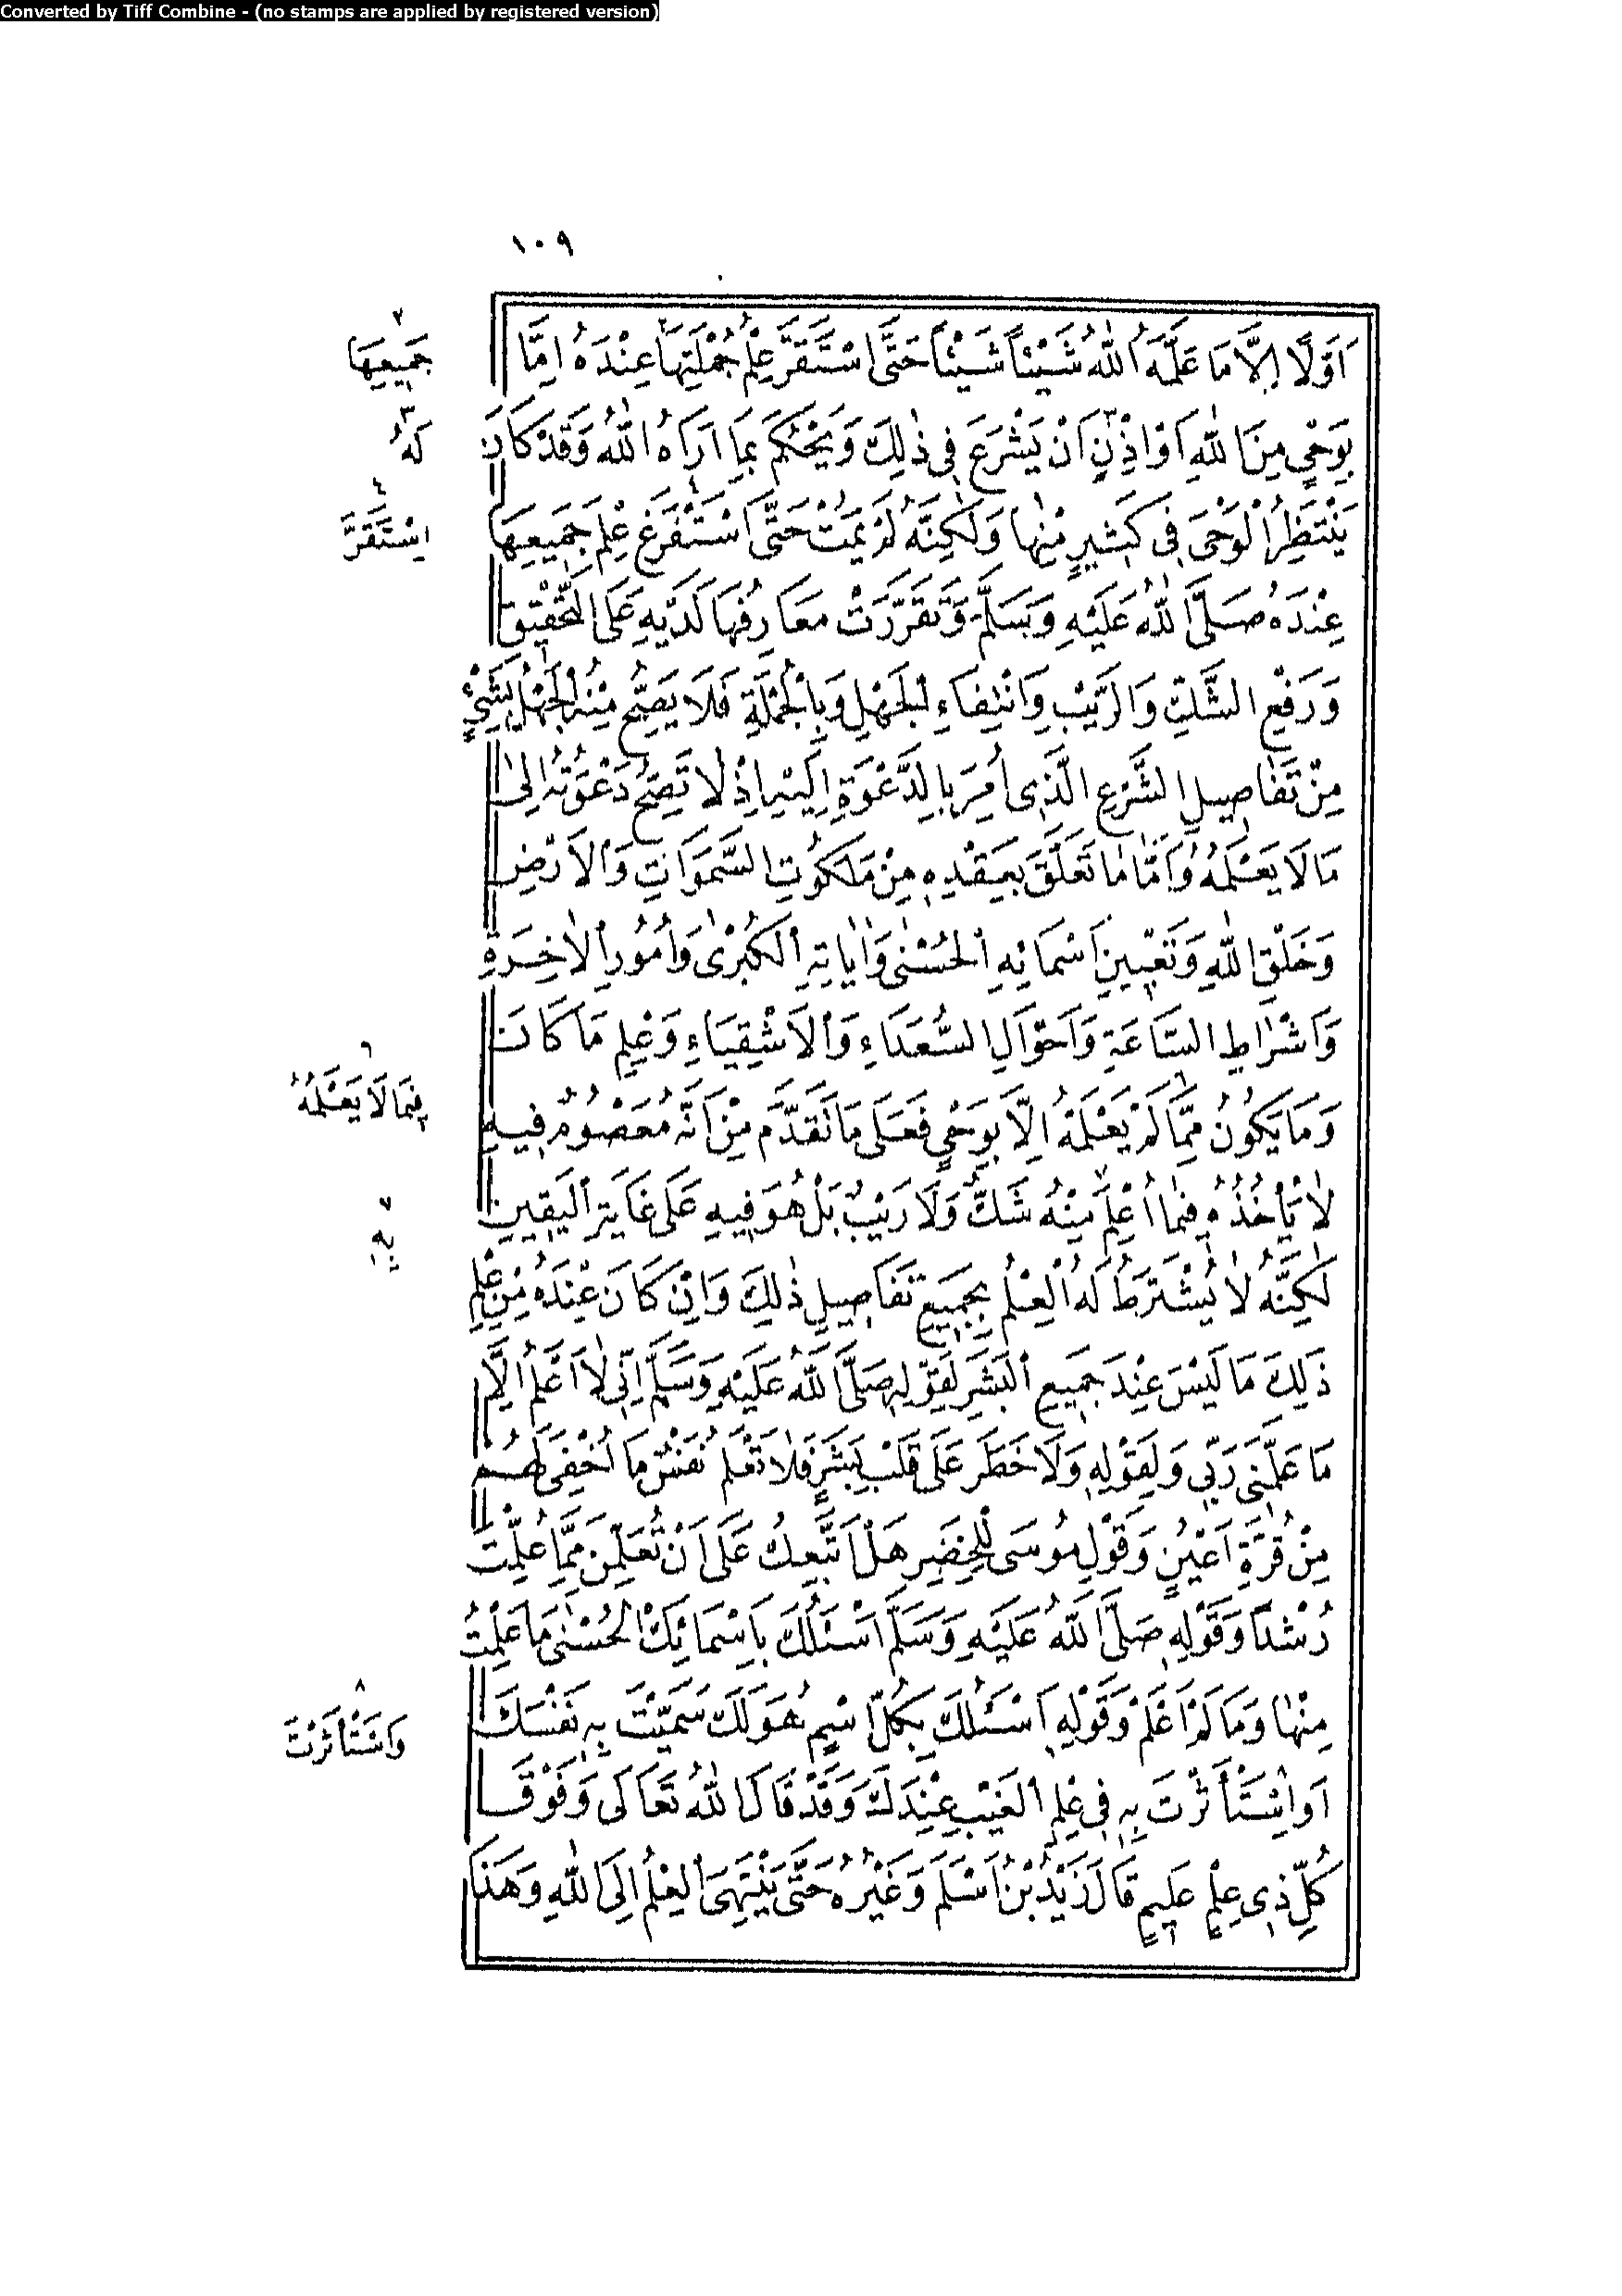 Converted by Tiff Combine - (no stamps are applied by registered version)
١٠٩
اَوَّلًا اِلَّا مَا عَلَّمَهُ اللهُ شَيْئاً شَيْئاً حَتَّى اسْتَقَرَّ عِلْمُ جُمْلَتِهَا عِنْدَهُ اِمَّا
بِوَحْىٍ مِنَ اللهِ اَوْ اِذْنٍ اَنْ يَشْرَعَ فِى ذٰلِكَ وَيَحْكُمَ بِمَا اَرَاهُ اللهُ وَقَدْ كَانَ
يَنْتَظِرُ الْوَحْىَ فِى كَثِيرٍ مِنْهَا وَلٰكِنَّهُ لَمْ يَمُتْ حَتَّى اسْتَفْرَغَ عِلْمَ جَمِيعِهَا
عِنْدَهُ صَلَّى اللهُ عَلَيْهِ وَسَلَّمَ وَتَقَرَّرَتْ مَعَارِفُهَا لَدَيْهِ عَلَى التَّحْقِيقِ
وَرَفْعِ الشَّكِّ وَالرَّيْبِ وَانْتِفَاءِ الْجَهْلِ وَبِالْجُمْلَةِ فَلَا يَصِحُّ مِنْهُ الْجَهْلُ بِشَىْءٍ
مِنْ تَفَاصِيلِ الشَّرْعِ الَّذِى اُمِرَ بِالدَّعْوَةِ اِلَيْهِ اِذْ لَا تَصِحُّ دَعْوَتُهُ اِلىٰ
مَا لَا يَعْلَمُهُ وَاَمَّا مَا تَعَلَّقَ بِعَقْدِهِ مِنْ مَلَكُوتِ السَّمَوَاتِ وَالْاَرْضِ
وَخَلْقِ اللهِ وَتَعْيِينِ اَسْمَائِهِ الْحُسْنٰى وَاٰيَاتِهِ الْكُبْرٰى وَاُمُورِ الْاٰخِرَةِ
وَاَشْرَاطِ السَّاعَةِ وَاَحْوَالِ السُّعَدَاءِ وَالْاَشْقِيَاءِ وَعِلْمِ مَا كَانَ
وَمَا يَكُونُ مِمَّا لَمْ يَعْلَمْهُ اِلَّا بِوَحْىٍ فَعَلَى مَا تَقَدَّمَ مِنْ اَنَّهُ مَعْصُومٌ فِيهِ
لَا يَأْخُذُهُ فِيمَا اُعْلِمَ مِنْهُ شَكٌّ وَلَا رَيْبٌ بَلْ هُوَ فِيهِ عَلَى غَايَةِ الْيَقِينِ
لٰكِنَّهُ لَا يُشْتَرَطُ لَهُ الْعِلْمُ بِجَمِيعِ تَفَاصِيلِ ذٰلِكَ وَاِنْ كَانَ عِنْدَهُ مِنْ عِلْمِ
ذَلِكَ مَا لَيْسَ عِنْدَ جَمِيعِ الْبَشَرِ لِقَوْلِهِ صَلَّى اللهُ عَلَيْهِ وَسَلَّمَ اِنِّى لَا اَعْلَمُ اِلَّا
مَا عَلَّمَنِى رَبِّى وَلِقَوْلِهِ وَلَا خَطَرَ عَلَى قَلْبِ بَشَرٍ فَلَا تَعْلَمُ نَفْسٌ مَا اُخْفِىَ لَهُمْ
مِنْ قُرَّةِ اَعْيُنٍ وَقَوْلِ مُوسَى لِلْخِضْرِ هَلْ اَتَّبِعُكَ عَلَى اَنْ تُعَلِّمَنِ مِمَّا عُلِّمْتَ
رُشْداً وَقَوْلِهِ صَلَّى اللهُ عَلَيْهِ وَسَلَّمَ اَسْئَلُكَ بِاَسْمَائِكَ الْحُسْنٰى مَا عَلِمْتُ
مِنْهَا وَمَا لَمْ اَعْلَمْ وَقَوْلِهِ اَسْئَلُكَ بِكُلِّ اسْمٍ هُوَ لَكَ سَمَّيْتَ بِهِ نَفْسَكَ
اَوِ اسْتَأْثَرْتَ بِهِ فِى عِلْمِ الْغَيْبِ عِنْدَكَ وَقَدْ قَالَ اللهُ تَعَالَى وَفَوْقَ
كُلِّ ذِى عِلْمٍ عَلِيمٌ قَالَ زَيْدُ بْنُ اَسْلَمَ وَغَيْرُهُ حَتَّى يَنْتَهِىَ الْعِلْمُ اِلَى اللهِ وَهَذَا
٢
جَمِيعِهَا
٣
لَهُ
٤
اِسْتَقَرَّ
٦
فِيمَا لَا يَعْلَمُهُ
٧
بِهِ
٨
وَاسْتَأْثَرْتَ